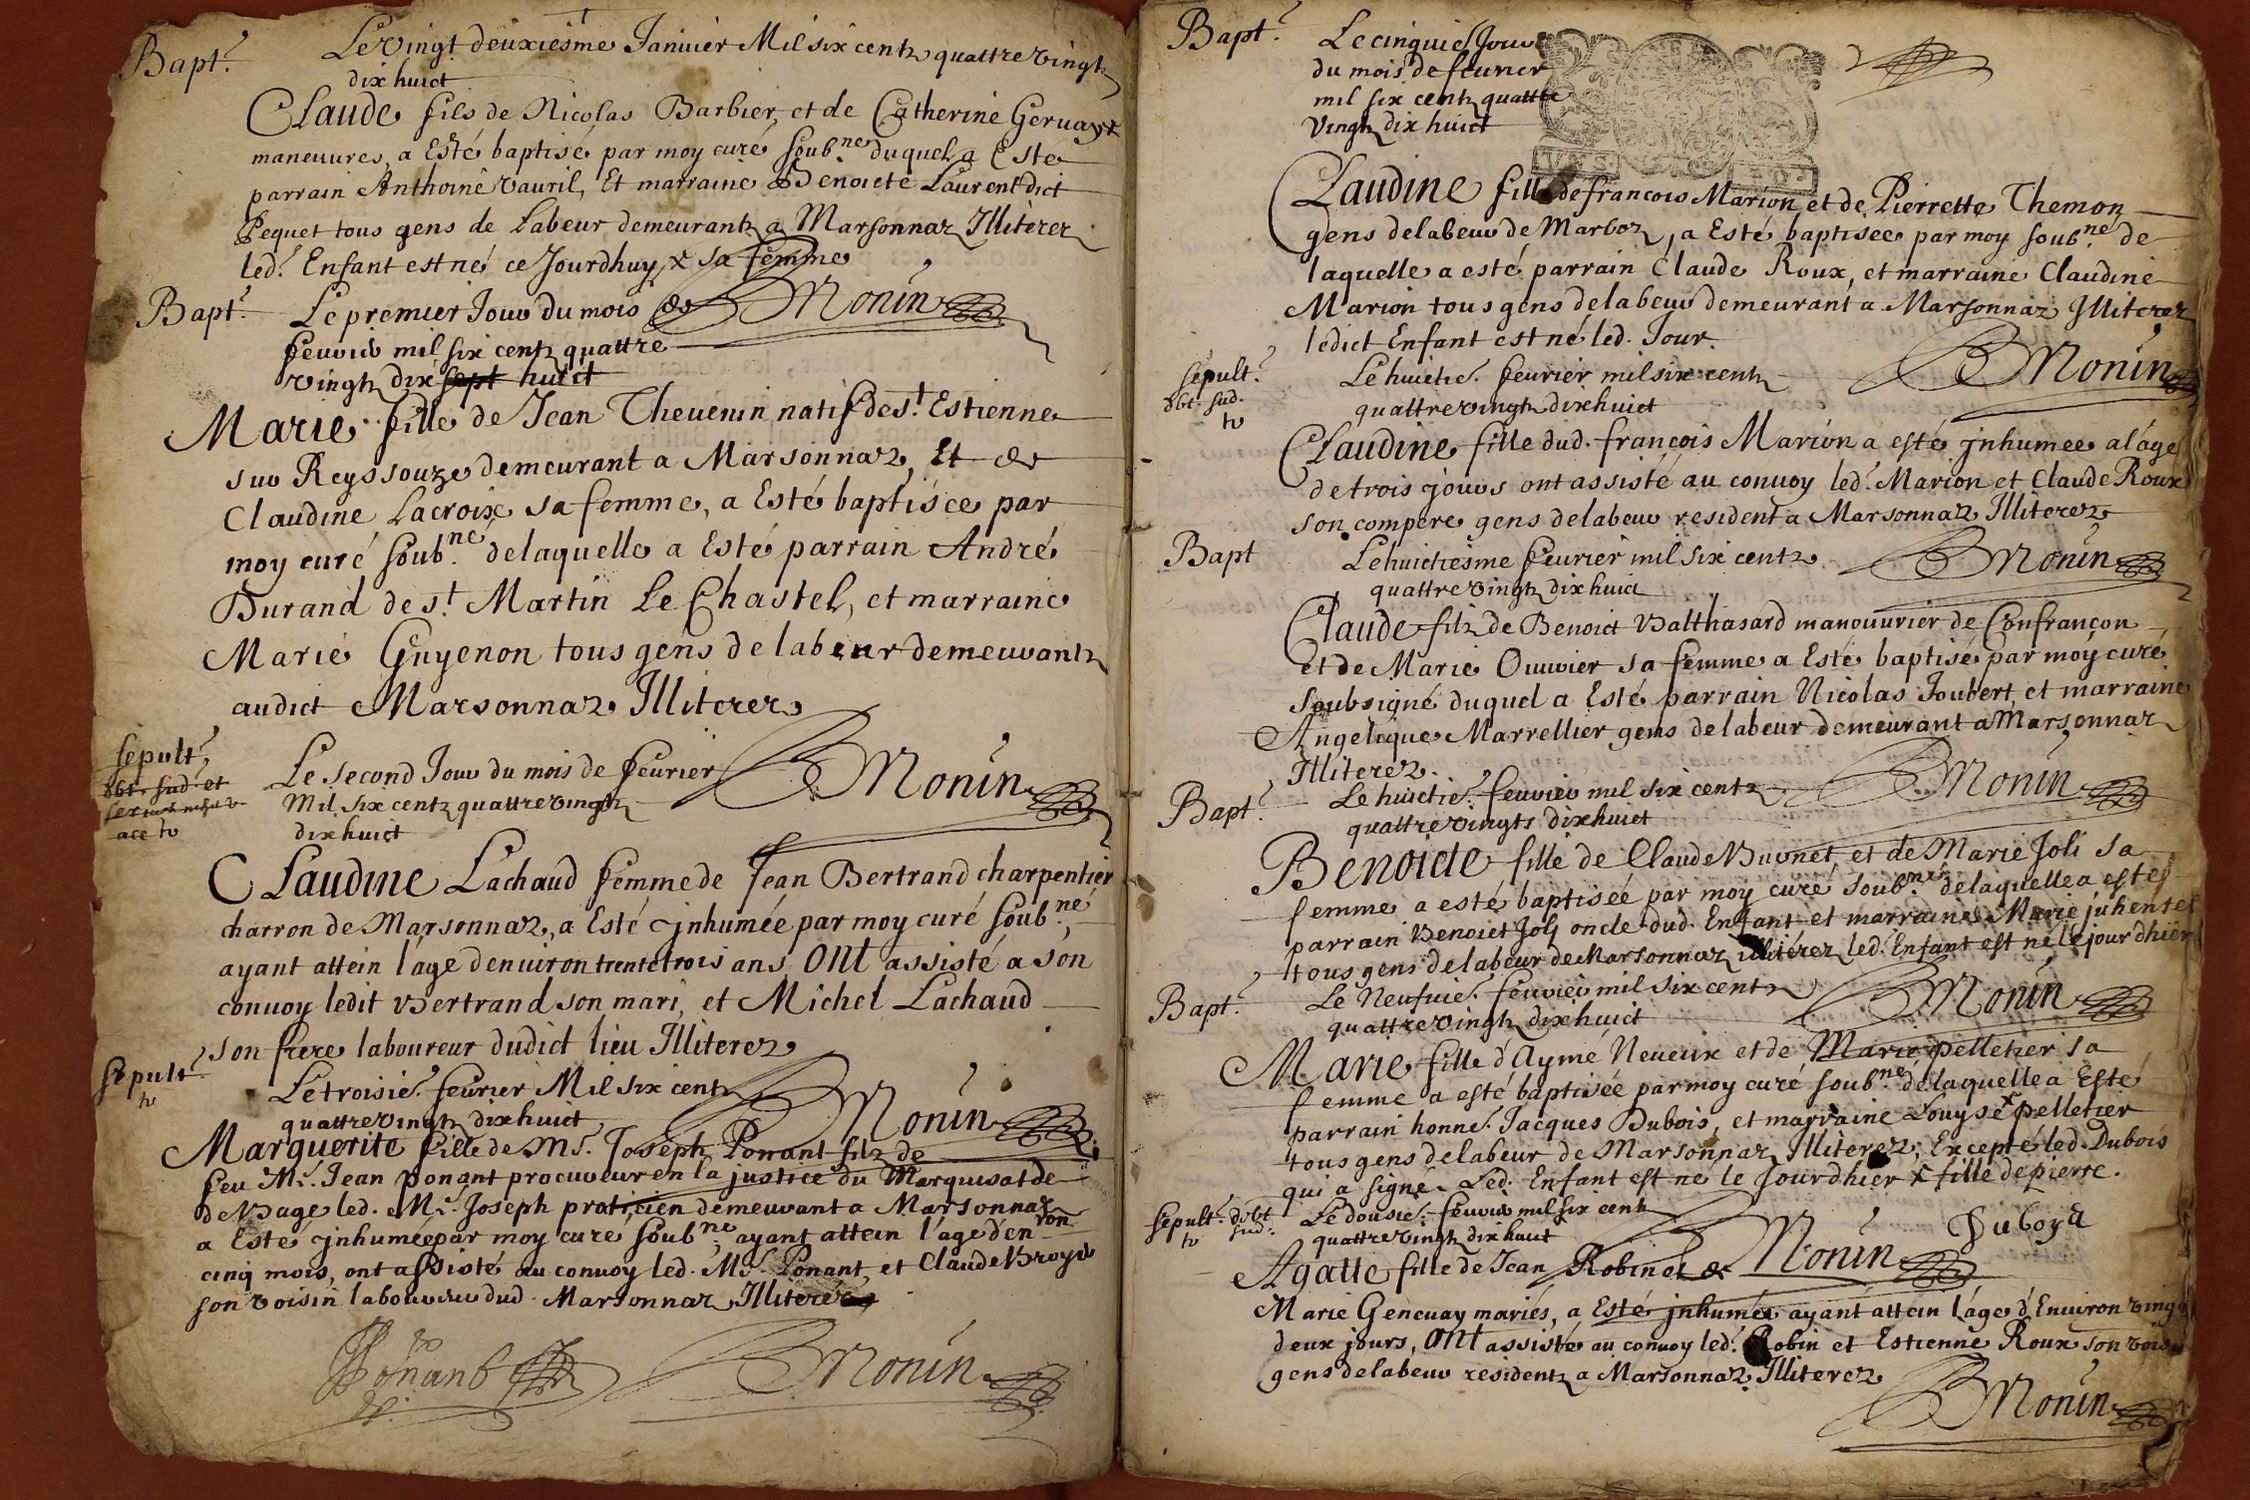 Bapt.
Le Vingt deuxiesme Januier Mil six centz quattre vingtz
dix huict
Claude fils de Nicolas Barbier, et de Catherine Geruays
maneuures, a Esté baptisé par moy curé soub.né duquel a Esté
parrain Anthoine vauril, Et marraine Benoiete Laurent dict
Pequet tous gens de Labeur demeurantz a Marsonnaz Illiterez
led. Enfant est né ce Jourdhuy x sa femme
Monin
Bapt.
Le premier Jour du mois de
feurier mil six centz quattre
vingtz dix sept huict
Marie fille de Jean Theuenin natif de s.t Estienne
sur Reyssouze demeurant a Marsonnaz, Et de
Claudine Lacroix sa femme, a Esté baptisée par
moy curé soub.né delaquelle a Esté parrain André
Durand de s.t Martin Le Chastel, et marraine
Marie Guyenon tous gens de labeur demeurantz
audict Marsonnaz Illiterez
Monin
sepult.
obt. sud. et
ace tv
Le second Jour du mois de feurier
Mil six centz quattre vingtz
dix huict
Claudine Lachaud femme de Jean Bertrand charpentier
charron de Marsonnaz, a Esté jnhumée par moy curé soub.né,
ayant attein l'áge denuiron trente trois ans ont assisté a son
conuoy ledit Bertrand son mari, et Michel Lachaud
son frere laboureur dudict lieu Illiterez
Monin
sepult.
tv
Le troisie. feurier Mil six centz
quattre vingtz dix huict
Marguerite fille de M.r Joseph Ponant filz de
feu M.r Jean Ponant procureur en la justice du Marquisat de
de Bage led. M.r Joseph praticien demeurant a Marsonnaz
a Esté jnhumée par moy curé soub.né ayant attein l'áge d'en.ron
cinq mois, ont assisté au conuoy led. M.r Ponant, et Claude Broyer
son voisin laboureur dud. Marsonnaz Illiteré
Ponant
Monin
Bapt.
Le cinquie. Jour
du mois de feurier
mil six centz quattre
vingtz dix huict
Claudine fille de francois Marion et de Pierrette Themon
gens de labeur de Marboz, a Esté baptisée par moy soub.né de
laquelle a esté parrain Claude Roux, et marraine Claudine
Marion tous gens de labeur demeurant a Marsonnaz Illiterez
ledict Enfant est né led. Jour.
Monin
sepult.
obt. sud.
tv
Le huictie. feurier mil six centz
quattre vingtz dix huict
Claudine fille dud. françois Marion a esté jnhumee a l'áge
de trois jours ont assisté au conuoy led. Marion et Claude Roux
son compere gens de labeur resident a Marsonnaz Illiterez
Monin
Bapt
Le huictiesme feurier mil six centz
quattre vingtz dix huict
Claude filz de Benoict Balthasard manouurier de Confrançon
et de Marie Ouurier sa femme a Esté baptisé par moy curé
soubsigné duquel a Esté parrain Nicolas Joubert, et marraine
Angelique Marrellier gens de labeur demeurant a Marsonnaz
Illiterez.
Monin
Bapt.
Le huictie. feurier mil six centz
quattre vingts dix huict
Benoicte fille de Claude Buonet, et de Marie Joli sa
femme a esté baptisée par moy curé soub.né delaquelle a esté
parrain Benoict Joli oncle dud. Enfant et marraine Marie
tous gens de labeur de Marsonnaz illiterez led. Enfant est né le jour dhier
Monin
Bapt.
Le Neufuie. feurier mil six centz
quattre vingtz dix huict
Marie fille d'Aymé Neueux et de Marie pelletier sa
femme a esté baptisée par moy curé soub.né delaquelle a Esté
parrain honne. Jacques Dubois, et marraine Louyse x pelletier
tous gens de labeur de Marsonnaz Illiterez, Excepté led. Dubois
qui a signé. Led. Enfant est né le Jourdhier x fille de pierre.
Monin
Duboys
sepult. d. obt
tv sud.
Le dousie. feurier mil six centz
quattre vingtz dix huict
Agatte fille de Jean Robin et de
Marie Gencuay mariés, a Esté jnhumée ayant attein l'áge d'Enuiron vingt
deux jours, ont assisté au conuoy led. Robin et Estienne Roux son voisin
gens de labeur residentz a Marsonnaz Illiterez
Monin